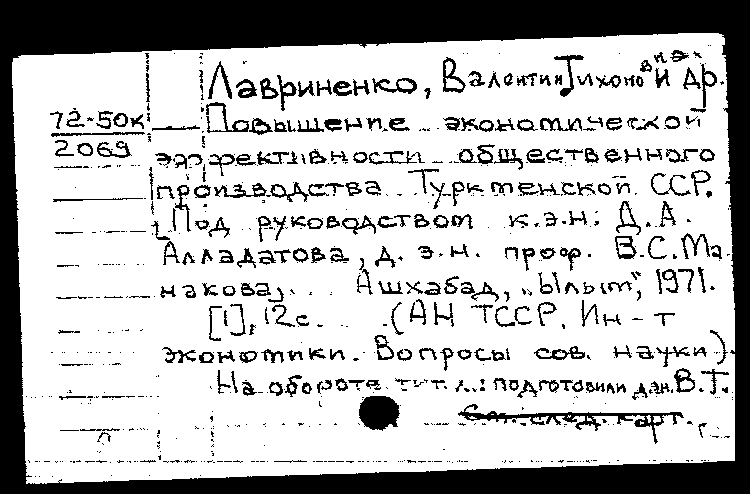 Лавриненко, Валентин Тихоно
вич и др.
72-50к
2069
Повышение экономической
эффективности общественного
производства Туркменской ССР.
[Под руководством к.э.н. Д.А.
Алладатова, д.э.н. проф. В.С.Ма
накова]. Ашхабад, "Ылым", 1971.
[1], 12с. (АН ТССР. Ин-т
экономики. Вопросы сов. науки).
На обороте тит. л.: подготовили дан. В.Т.
См. след. карт.